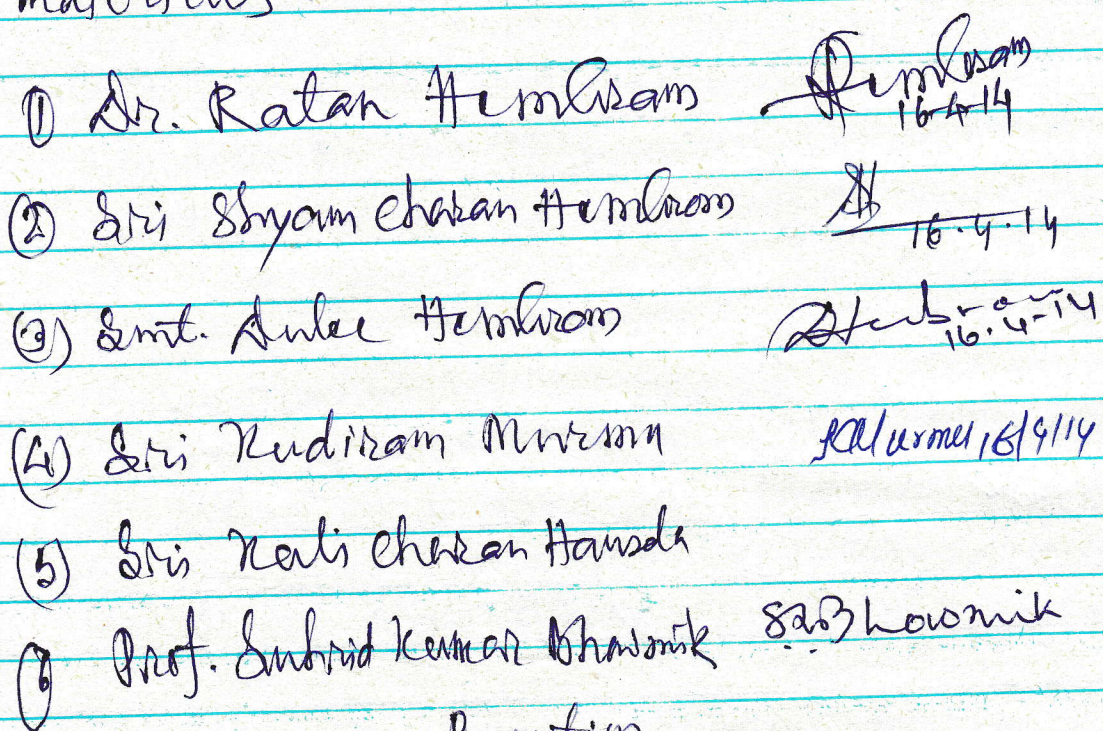 ① Dr. Ratan Hembram Hembram 16-4-14
② Sri Shyam Charan Hembrom SH 16.4.14
(3) Smt. Dulee Hembrom 16.4.14
(4) Sri Kudiram Murmu KMurmu 16/4/14
(5) Sri Kali Charan Hansda
⑥ Prof. Suhrid Kumar Bhowmik S.K.Bhowmik